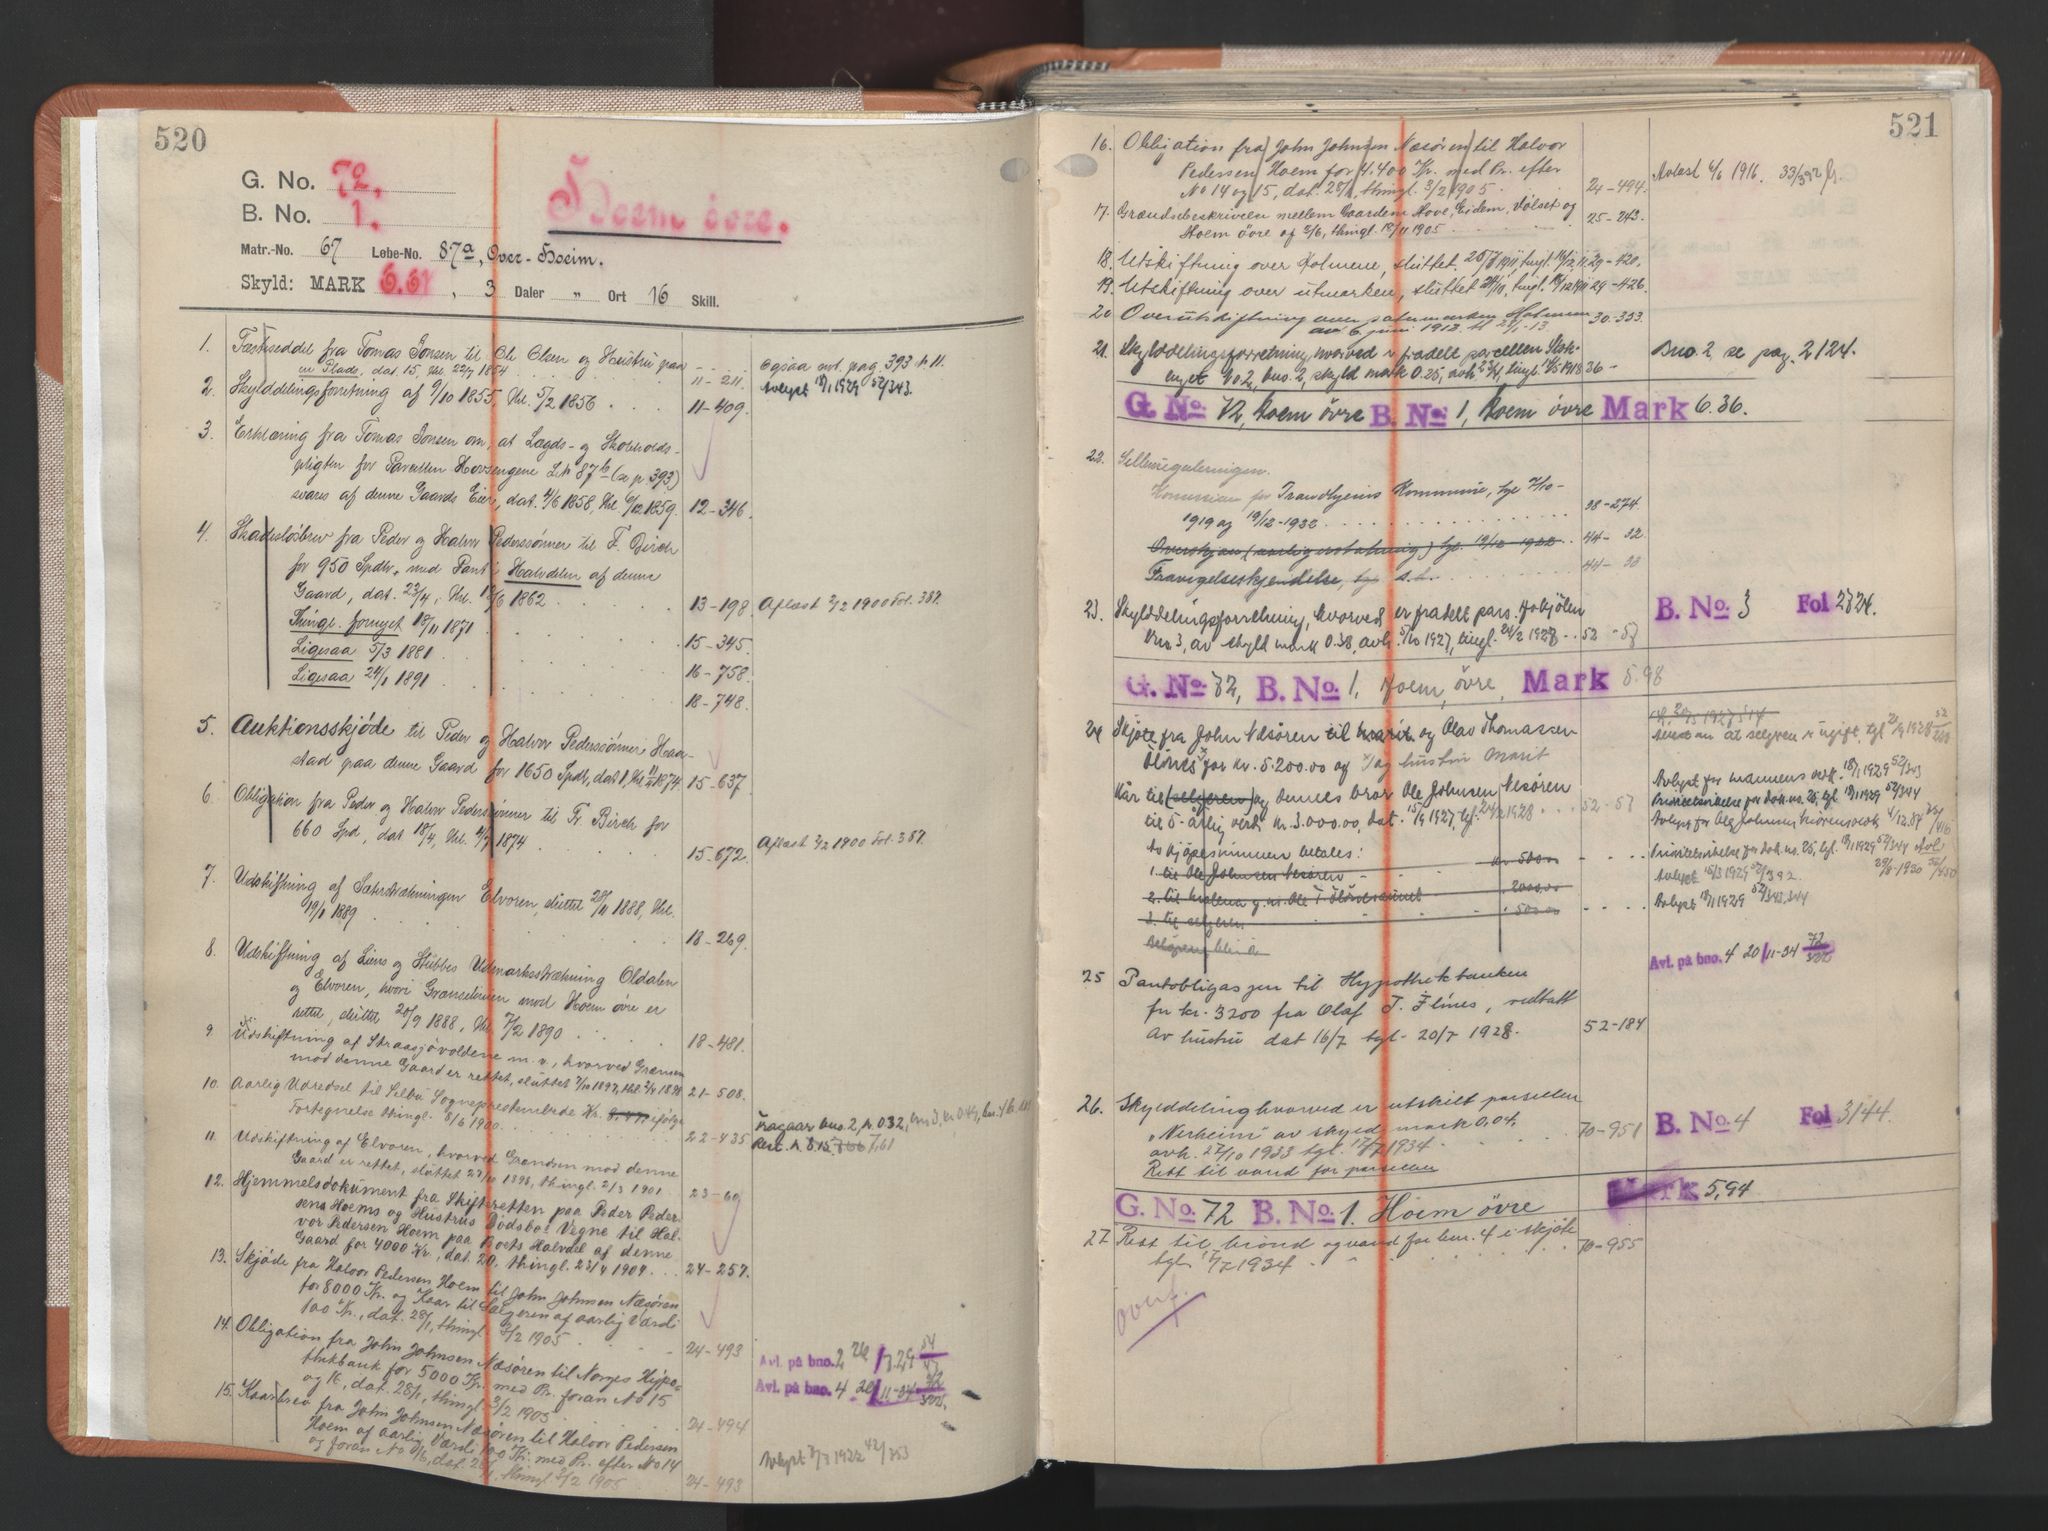 520
G. No. 72.
B. No. 1.
Hoem övre.
Matr.-No. 67 Løbe-No. 87a, Over-Hoeim.
Skyld: MARK 6.61, 3 Daler " Ort 16 Skill.
1. Fæsteseddel fra Tomas Jonsen til Ole Olsen og Hustru paa
en Plads, dat. 15, thl. 22/7 1854 11-211. ogsaa not. pag. 393 n. 11.
Avlyst 18/1 1929 52/343.
2. Skylddelingsforretning af 9/10 1855, thl. 5/2 1856 11-409.
3. Erklæring fra Tomas Jonsen om, at Lægds- og Skoleholds-
pligten for Parcellen Hovsengene L.N. 87b (se p. 393)
svares af denne Gaards Eier, dat. 4/6 1858, thl. 6/12 1859. 12-346.
4. Skadesløsbrev fra Peder og Halvor Pederssønner til F. Birch
for 950 Spdlr. med Pant i Halvdelen af denne
Gaard, dat. 23/4, thl. 12/6 1862 13-198. Aflæst 2/2 1900 Fol. 387.
Thingl. fornyet 18/11 1871 15-345.
Ligesaa 5/3 1881 16-758.
Ligesaa 24/1 1891 18-748.
5. Auktionsskjøde til Peder og Halvor Pederssønner Haa-
stad paa denne Gaard for 1650 Spdlr, dat. 1, thl. 11/4 1874. 15-637.
6. Obligation fra Peder og Halvor Pederssønner til Fr. Birch for
660 Spd, dat. 18/4, thl. 4/7 1874 15-672. Aflæst 2/2 1900 Fol. 387.
7. Udskiftning af Sæterstrækningen Elvoren, sluttet 28/11 1888, thl.
19/1 1889 18-269.
8. Udskiftning af Liens og Stubbes Udmarksstrækning Oldalen
og Elvoren, hvori Grænselinien mod Hoem øvre er
rettet, sluttet 28/9 1888, thl. 7/2 1890 18-481.
9. Udskiftning af Straasjøvoldene m. v., hvorved Grænsen
mod denne Gaard er rettet, sluttet 7/10 1897, thl. 2/4 1898 21-508.
10. Aarlig Udredsel til Selbu Sognepresteembede Kr. ifølge
Fortegnelse thingl. 8/6 1900 22-435 Fragaar bno. 2, kr. 0.32,
11. Udskiftning af Elvoren, hvorved Grændsen mod denne
Gaard er rettet, sluttet 27/10 1898, thingl. 2/3 1901. 23-60
12. Hjemmelsdokument fra Skifteretten paa Peder Peder-
sens Hoems og Hustrus Dødsbos Vegne til Hal-
vor Pedersen Hoem paa Boets Halvdel af denne
Gaard for 4000 Kr., dat. 20, thingl. 23/4 1904 24-257.
13. Skjøde fra Halvor Pedersen Hoem til John Johnsen Næsøren
for 8000 Kr. og Kaar til Sælgeren af aarlig Værdi
100 Kr., dat. 28/1, thingl. 3/2 1905 24-493
14. Obligation fra John Johnsen Næsøren til Norges Hypo-
thekbank for 5000 Kr. med Pr. foran No 15
og 16, dat. 28/1, thingl. 3/2 1905 24-494
Avl. på bno. 2
Avl. på bno. 4 20/11-34 72/
15. Kaarbrev fra John Johnsen Næsøren til Halvor Pedersen
Hoem af aarlig Værdi 100 Kr. med Pr. efter No 14
og foran No 16, dat. 28/1, thingl. 3/2 1905 24-493
Avlyst 1922 42/353
521
16. Obligation fra John Johnsen Næsøren til Halvor
Pedersen Hoem for 4.400 Kr. med Pr. efter
No 14 og 15, dat. 28/1, thingl. 3/2 1905 24-494. Avlæst 6/6 1916. 33/392
17. Grændsebeskrivelse mellem Gaardene Hove, Eidem, Dølset og
Hoem övre af 2/6, thingl. 18/11 1905 25-243.
18. Utskiftning over Holmene, sluttet 25/8 1911, tingl. 14/12 11 29-420.
19. Utskiftning over utmarken, sluttet 24/11, tingl. 14/12 1911 29-426.
20 Overutskiftning over Holmene
av 6. juni 1913 30-353.
21. Skylddelingsforretning, hvorved er fradelt parcellen
bno. 2, skyld mark 0.25, avh. 23/4, tingl. 1918 36- Bno. 2, se pag. 2124.
G. No. 72, hoem övre B. No. 1, hoem övre Mark 6.36.
22. Selbureguleringen.
Konsesjon for Trondhjems Kommune, tgl 7/10-
1919 og 19/12-1922 38-274.
Overskjøn (aarlig erstatning) tgl. 19/12 1922 44-32
Fravigelseskjendelse, tgl s.d. 44-30
23. Skylddelingsforretning, hvorved er fradelt pars.
bno. 3, av skyld mark 0.38, avh. 5/10 1927, tingl. 24/2 1928 52-57 B. No. 3 Fol 2824.
G. No. 72, B. No. 1, Hoem, övre, Mark 5.98
24 Skjøte fra John Næsören til Marit og Olav Thomassen
for kr. 5.200.00 og
Kår til (selgeren) og dennes bror Ole Johnsen Nesören
til 5-årlig verdi kr. 3.000.00, dat. 15/9 1927, tgl. 24/2 1928 52-57
Av kjøpesummen betales: kr 500.00
1. til Ole Johnsen Nesören 2000.00
3. til selgeren 500.00
attest om at selgeren er ugift, tgl 1928
Avlyst for mannens vedk. 18/1 1929 52/343
Prioritetsvikelse for dok. no. 25, tgl 18/1 1929 52/344
Prioritetsvikelse for dok. no. 25, tgl. 18/1 1929 52/344
Avlyst 15/3 1929 52/392.
Avlyst 18/1 1929 52/343, 344
Avl. på bno. 4 20/11-34 72/
25 Pantobligasjon til Hypothekbanken
for kr. 3200 fra Olaf T. Flönes, vedtatt
av hustru dat 16/7 tgl. 20/7 1928. 52-184
26. Skylddeling hvorved er utskilt parsellen
"Nerheim" av skyld mark 0,04,
avh. 27/10 1933 tgl. 17/7 1934. 70-951 B. No. 4 Fol 3144.
Rett til vand for parsellen
G. No. 72 B. No. 1. Hoem övre Mark 5,94
27 Rett til brönd og vand for bnr. 4 i skjöte
tgl. 17/7 1934. 70-955
overf.